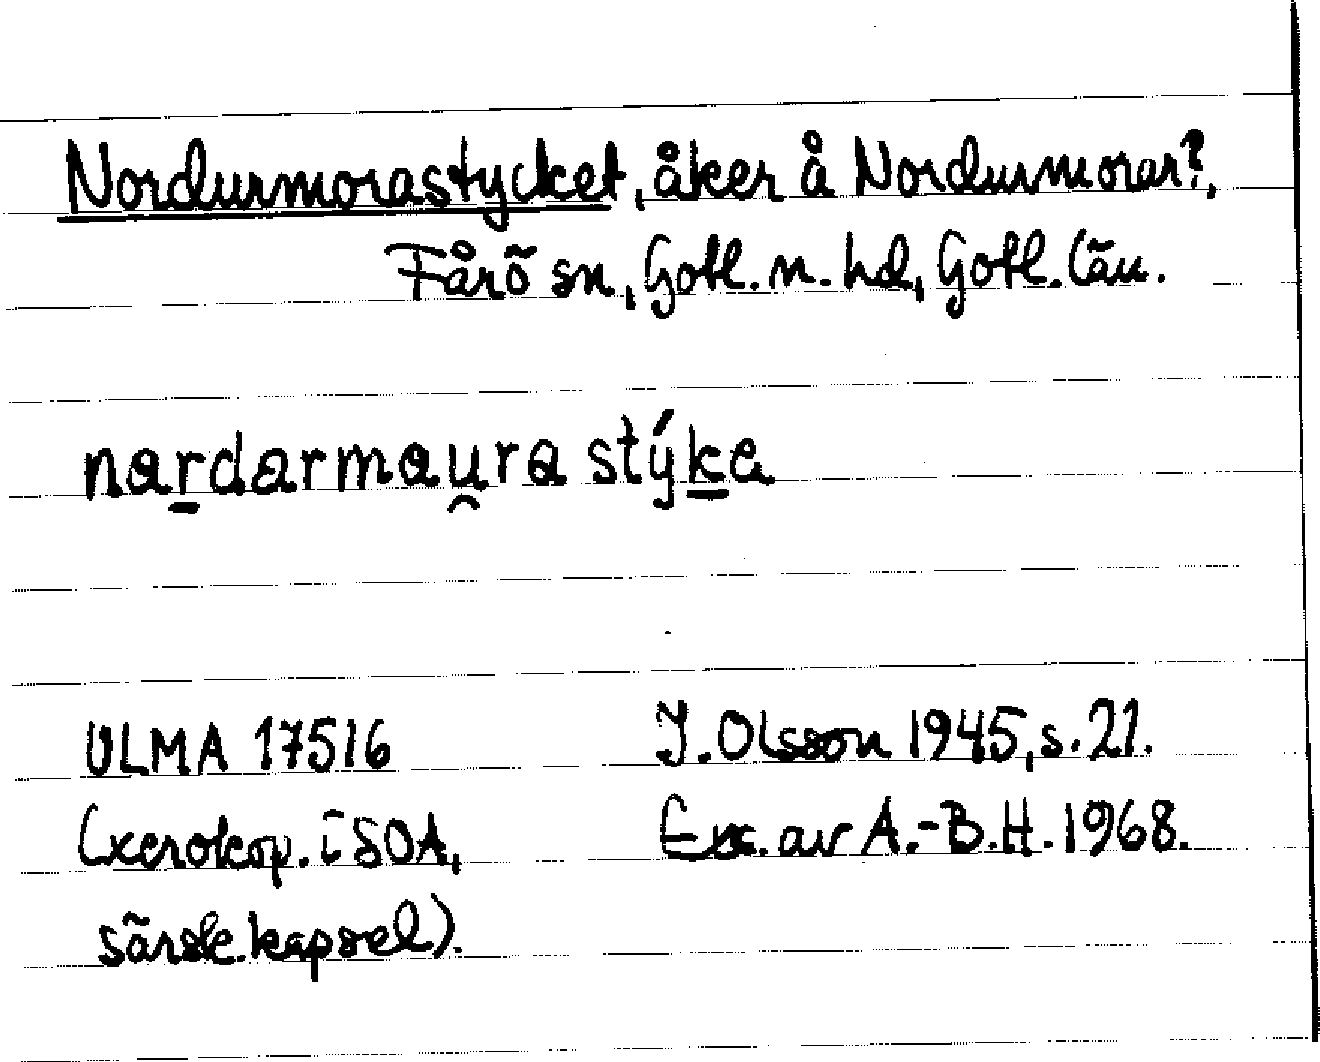 Nordurmorastycket, åker å Nordurmorar?,
Fårö sn, Gotl. n. hd, Gotl. län.
nardarmau̯ra stýka
ULMA 17516 J. Olsson 1945, s. 21.
(xerokop. i SOA, Exc. av A.-B.H. 1968.
särsk. kapsel).